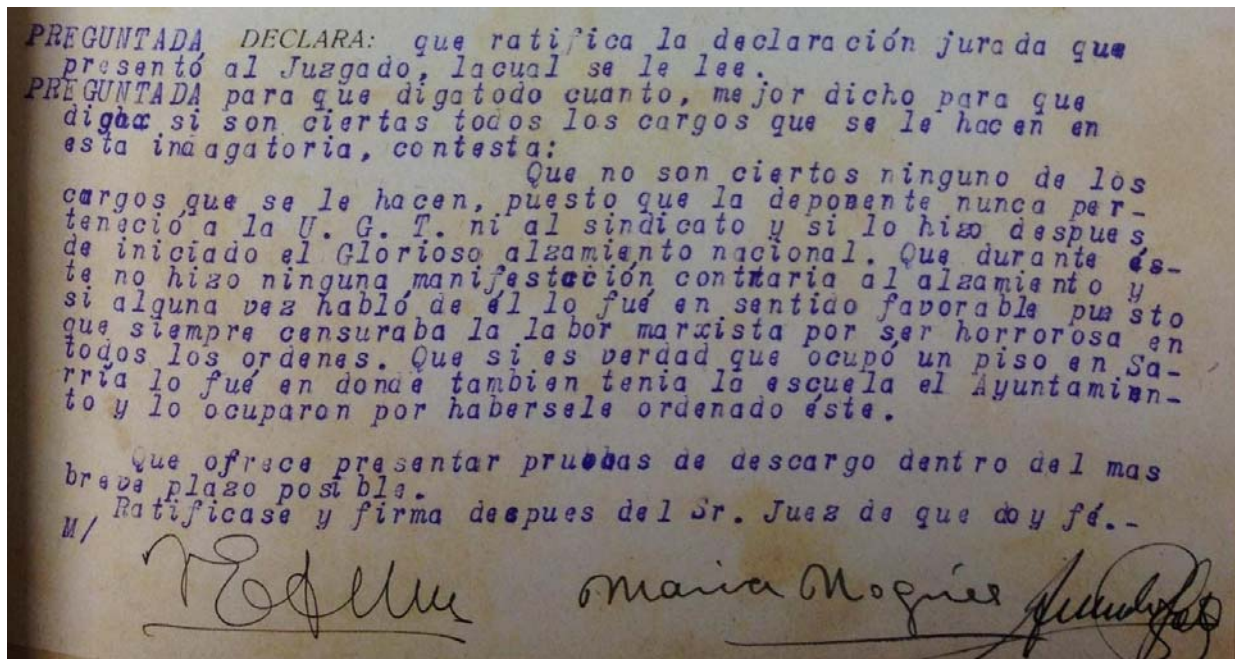 PREGUNTADA DECLARA: que ratifica la declaración jurada que
presentó al Juzgado, lacual se le lee.
PREGUNTADA para que digatodo cuanto, mejor dicho para que
digax si son ciertas todos los cargos que se le hacen en
esta indagatoria, contesta:
Que no son ciertos ninguno de los
cargos que se le hacen, puesto que la deponente nunca per-
teneció a la U. G. T. ni al sindicato y si lo hizo despues
de iniciado el Glorioso alzamiento nacional. Que durante és-
te no hizo ninguna manifestación contraria al alzamiento y
si alguna vez habló de él lo fué en sentido favorable puesto
que siempre censuraba la labor marxista por ser horrorosa en
todos los ordenes. Que si es verdad que ocupó un piso en Sa-
rría lo fué en donde tambien tenia la escuela el Ayuntamien-
to y lo ocuparon por habersele ordenado éste.
Que ofrece presentar pruebas de descargo dentro del mas
breve plazo posible.
Ratificase y firma despues del Sr. Juez de que doy fé.-
M/
Maria Nogués